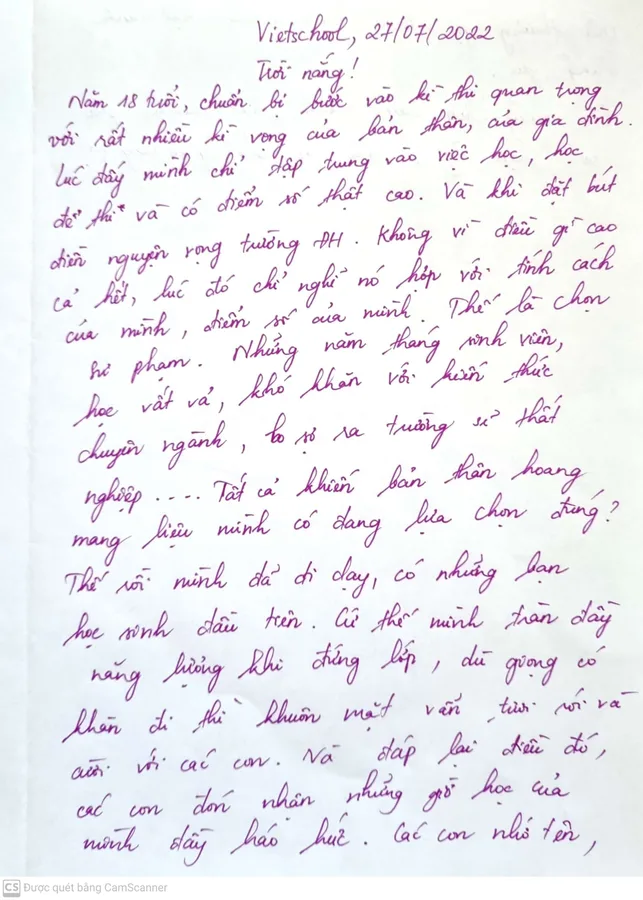 Vietschool, 27/07/2022
Trời nắng!
Năm 18 tuổi, chuẩn bị bước vào kì thi quan trọng
với rất nhiều kì vọng của bản thân, của gia đình.
Lúc đấy mình chỉ tập trung vào việc học, học
để thi và có điểm số thật cao. Và khi đặt bút
điền nguyện vọng trường ĐH. Không vì điều gì cao
cả hết, lúc đó chỉ nghĩ nó hợp với tính cách
của mình, điểm số của mình. Thế là chọn
sư phạm. Những năm tháng sinh viên,
học vất vả, khó khăn với kiến thức
chuyên ngành, lo sợ ra trường sẽ thất
nghiệp .... Tất cả khiến bản thân hoang
mang liệu mình có đang lựa chọn đúng?
Thế rồi mình đã đi dạy, có những bạn
học sinh đầu tiên. Cứ thế mình tràn đầy
năng lượng khi đứng lớp, dù giọng có
khàn đi thì khuôn mặt vẫn tươi rói và
cười với các con. Và đáp lại điều đó,
các con đón nhận những giờ học của
mình đầy háo hức. Các con nhớ tên,
CS Được quét bằng CamScanner